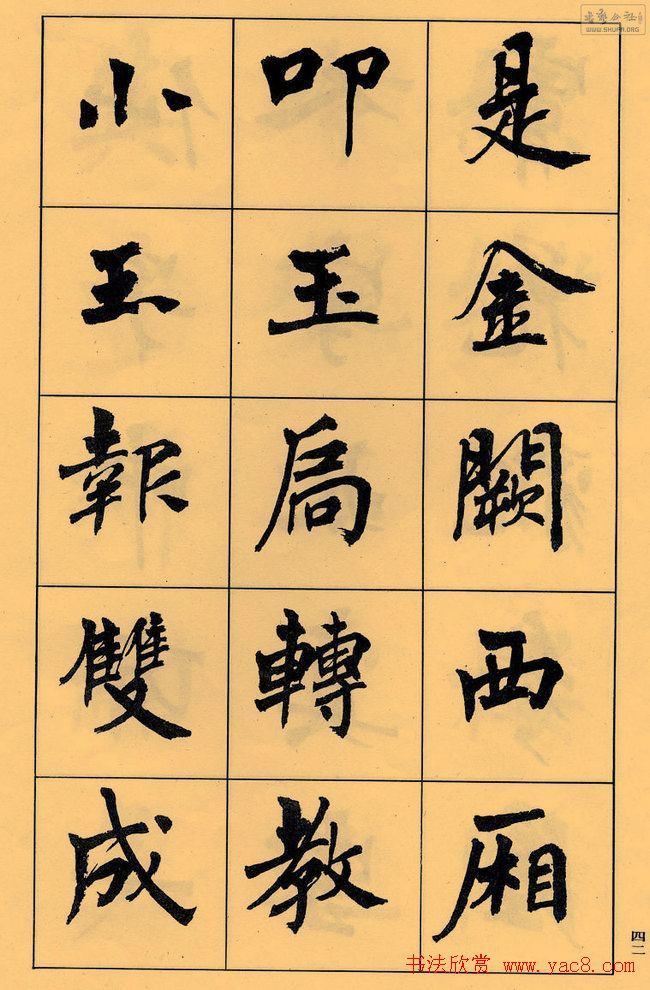 是金闕西厢
叩玉扃轉教
小玉報雙成
四二
书法欣赏 www.yac8.com
WWW.SHUFA.ORG